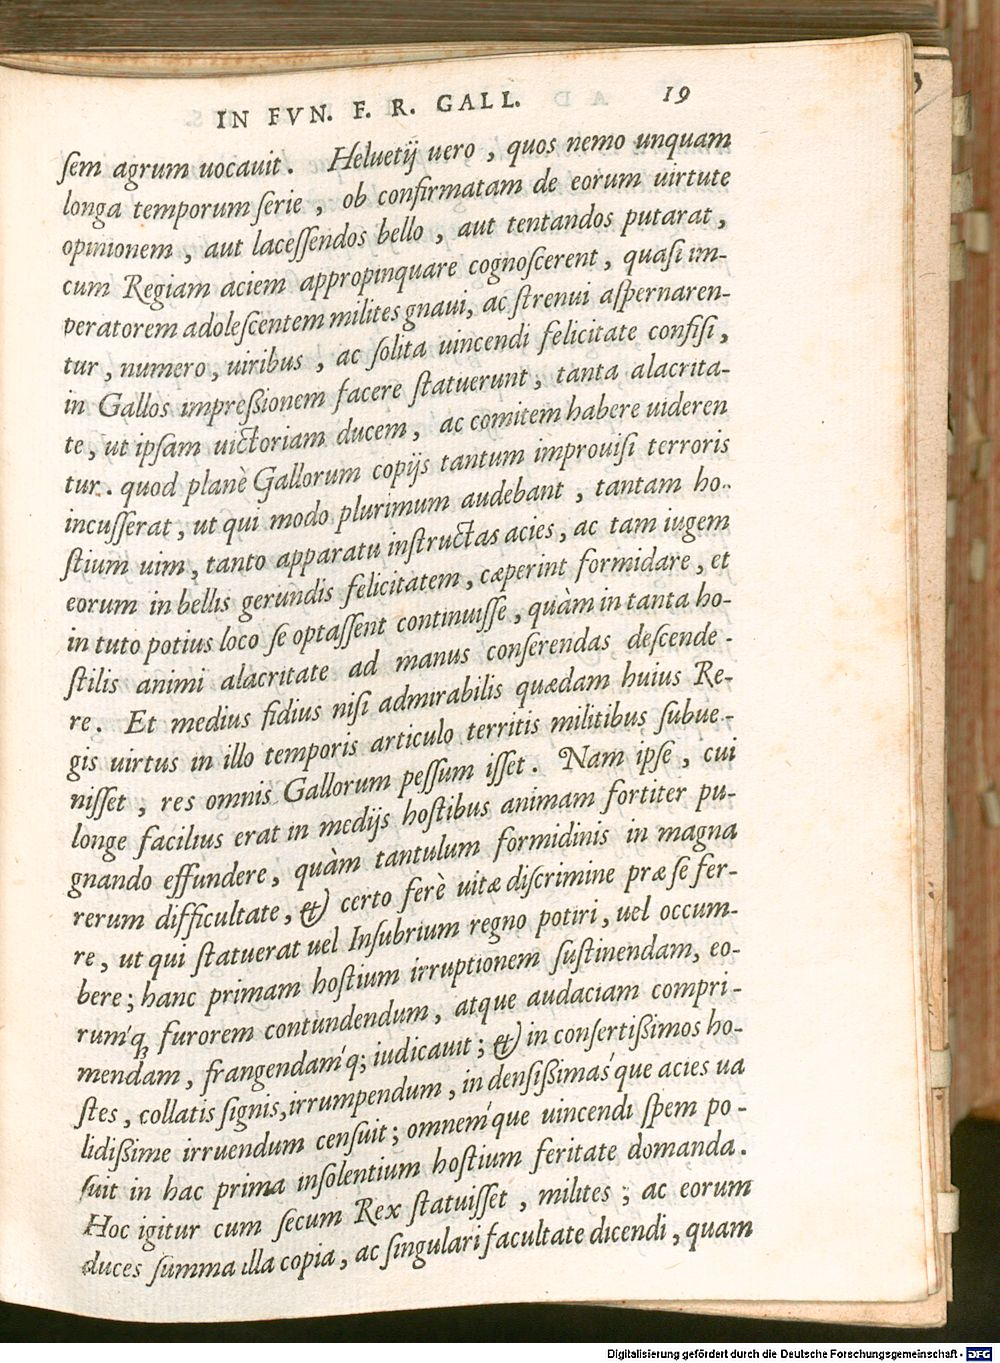 IN FVN. F. R. GALL. 19
sem agrum uocauit. Heluetij uero, quos nemo unquam
longa temporum serie, ob confirmatam de eorum uirtute
opinionem, aut lacessendos bello, aut tentandos putarat,
cum Regiam aciem appropinquare cognoscerent, quasi im-
peratorem adolescentem milites gnaui, ac strenui aspernaren-
tur, numero, uiribus, ac solita uincendi felicitate confisi,
in Gallos impreßionem facere statuerunt, tanta alacrita-
te, ut ipsam uictoriam ducem, ac comitem habere uideren
tur. quod planè Gallorum copijs tantum improuisi terroris
incusserat, ut qui modo plurimum audebant, tantam ho-
stium uim, tanto apparatu instructas acies, ac tam iugem
eorum in bellis gerundis felicitatem, cæperint formidare, et
in tuto potius loco se optassent continuisse, quàm in tanta ho-
stilis animi alacritate ad manus conserendas descende-
re. Et medius fidius nisi admirabilis quædam huius Re-
gis uirtus in illo temporis articulo territis militibus subue-
nisset, res omnis Gallorum pessum isset. Nam ipse, cui
longe facilius erat in medijs hostibus animam fortiter pu-
gnando effundere, quàm tantulum formidinis in magna
rerum difficultate, & certo ferè uitæ discrimine præ se fer-
re, ut qui statuerat uel Insubrium regno potiri, uel occum-
bere; hanc primam hostium irruptionem sustinendam, eo-
rum'q; furorem contundendum, atque audaciam compri-
mendam, frangendam'q; iudicauit; & in consertißimos ho-
stes, collatis signis, irrumpendum, in densißimas'que acies ua
lidißime irruendum censuit; omnem'que uincendi spem po-
suit in hac prima insolentium hostium feritate domanda.
Hoc igitur cum secum Rex statuisset, milites; ac eorum
duces summa illa copia, ac singulari facultate dicendi, quam
Digitalisierung gefördert durch die Deutsche Forschungsgemeinschaft - DFG